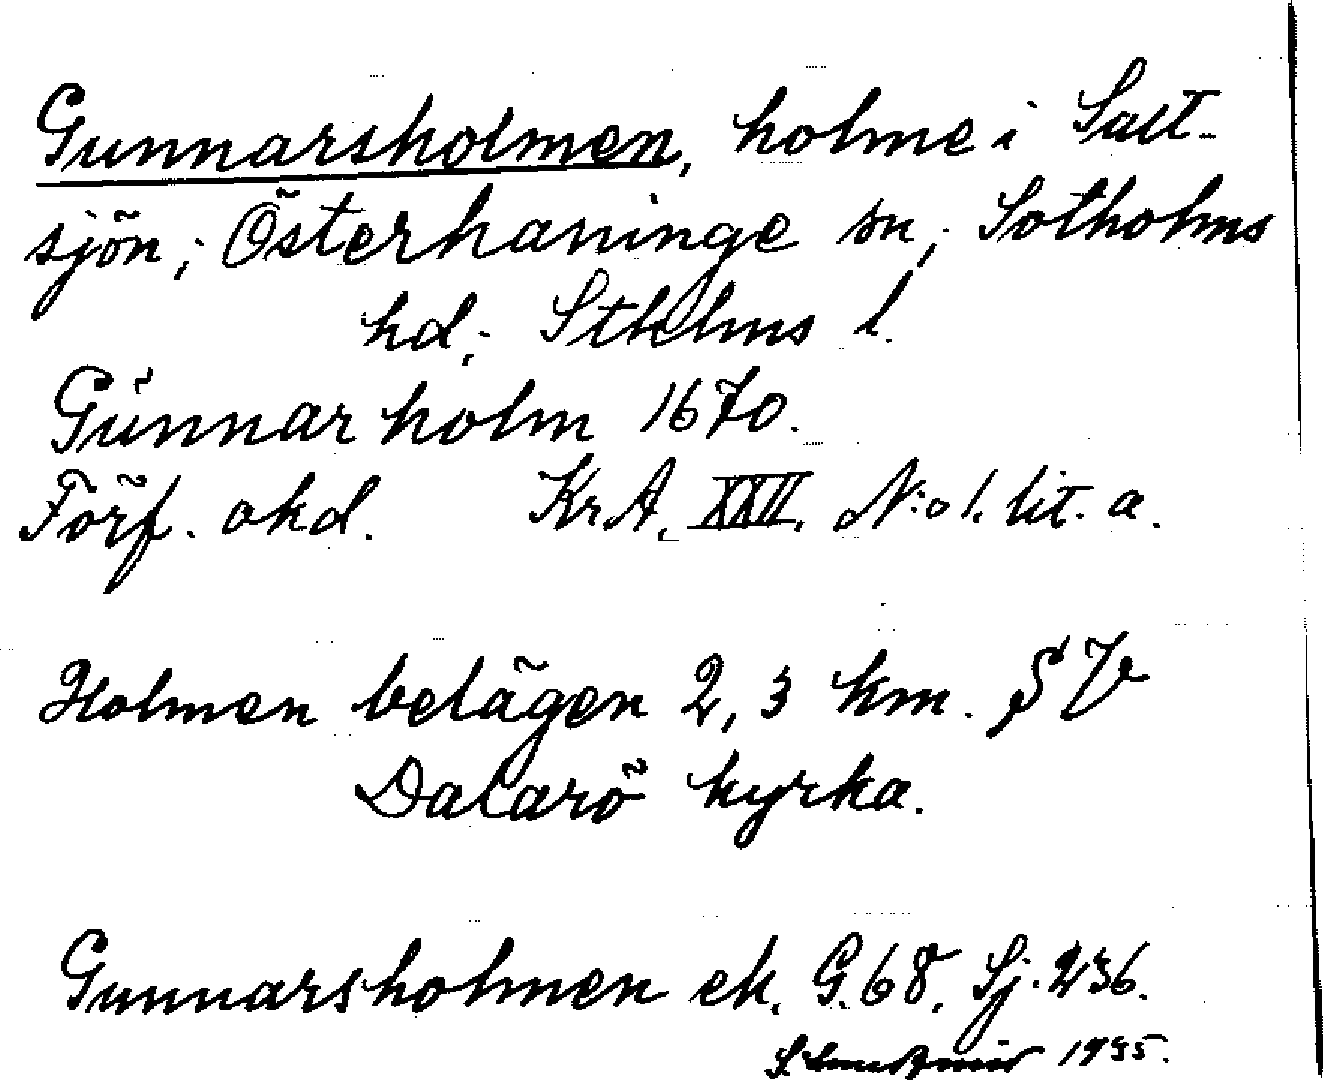 Gunnarsholmen, holme i Salt-
sjön; Österhaninge sn; Sotholms
hd; Stklms l.
Gŭnnar holm 1670.
Förf. okd. KrA. XXII. N:o 1. lit. a.
Holmen belägen 2,3 km. SV
Dalarö kyrka.
Gunnarsholmen ek. G.68. Sj. 236.
1935.